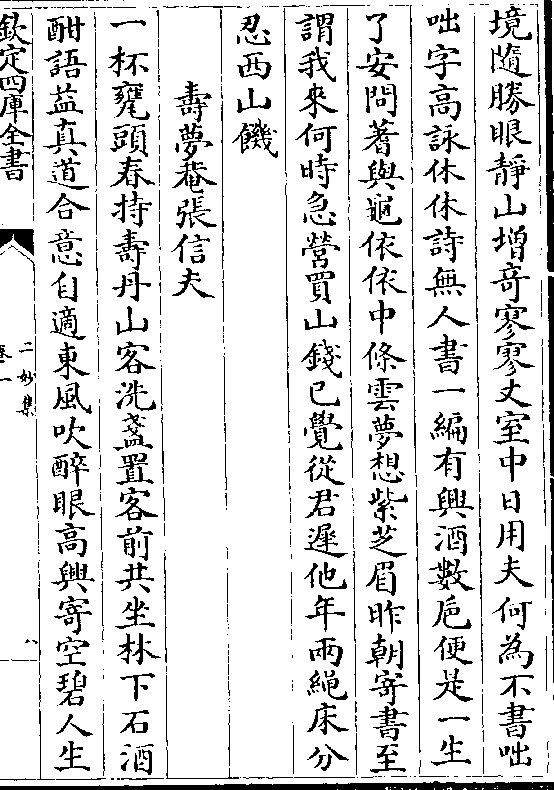 境隨勝眼靜山增竒寥寥丈室中日用夫何為不書咄
咄字高詠休休詩無人書一編有興酒數巵便是一生
了安問蓍與龜依依中條雲夢想紫芝眉昨朝寄書至
謂我來何時急營買山錢已覺從君遲他年兩繩床分
忍西山饑
壽夢菴張信夫
一杯甕頭春持壽丹山客洗盞置客前共坐林下石酒
酣語益真道合意自適東風吹醉眼高興寄空碧人生
欽定四庫全書
二妙集
卷一
八